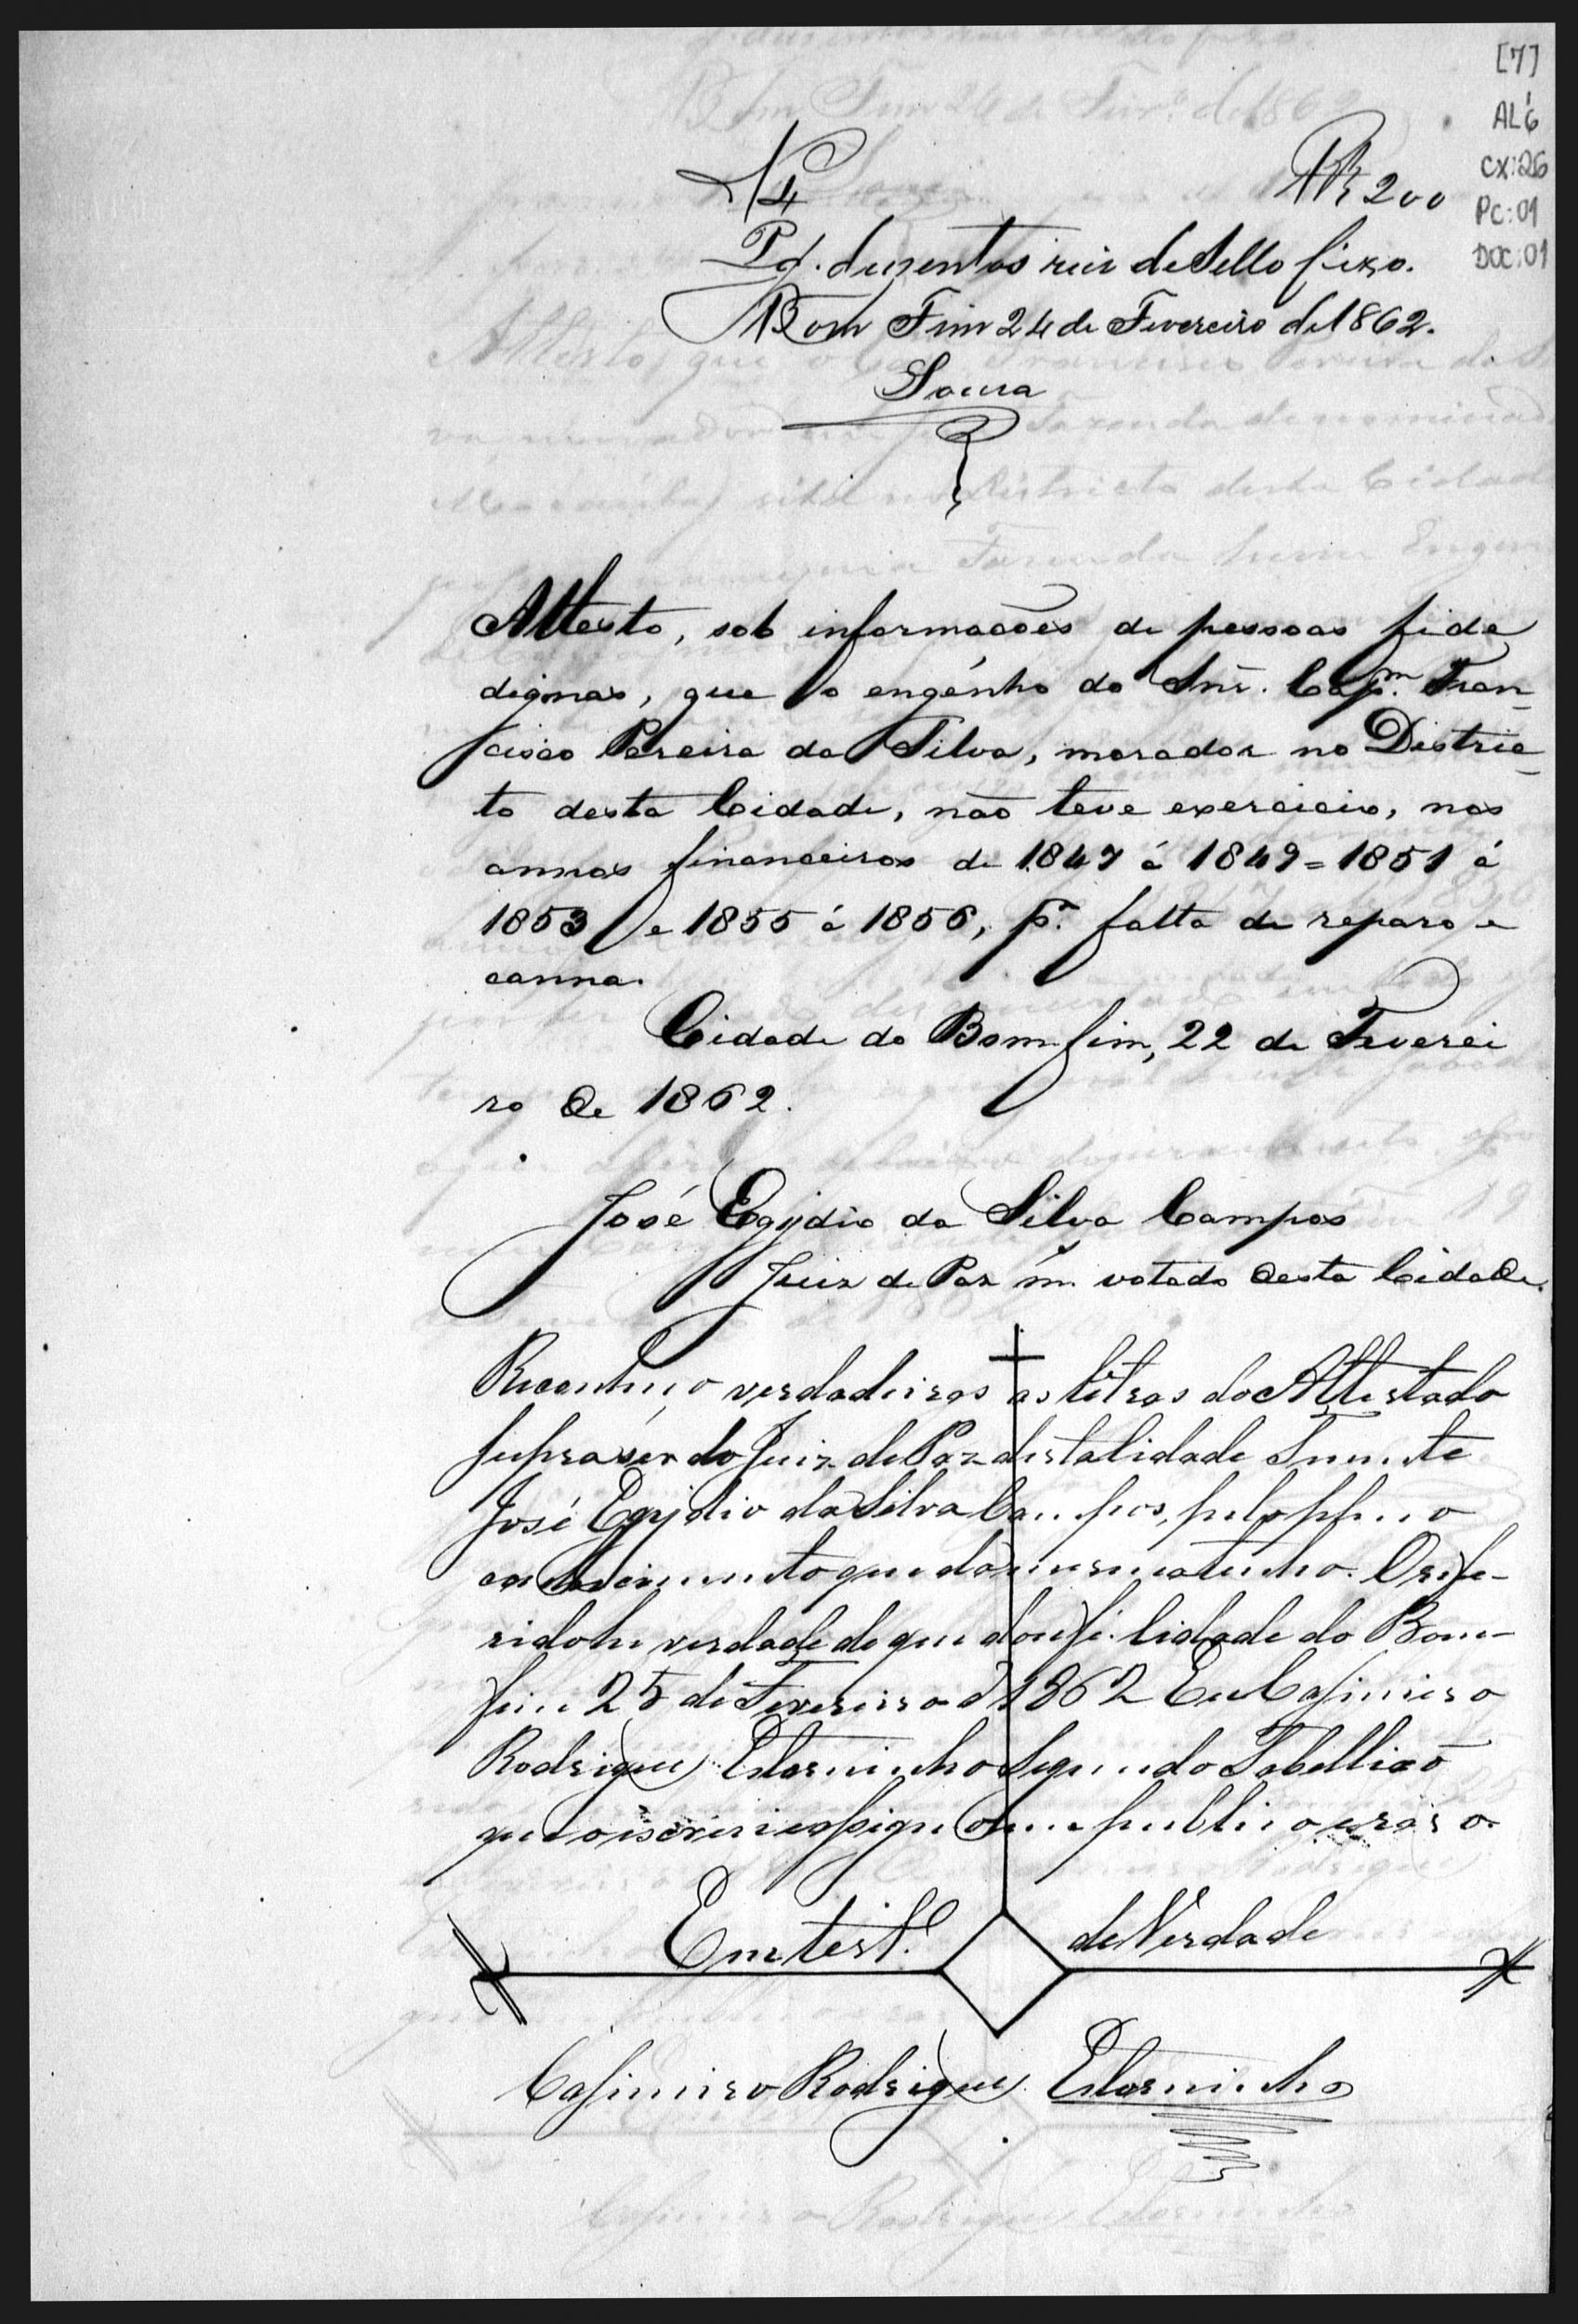 [7]
AL6
CX:26
PC:01
DOC:01
N 4
R 200
Pg. duzentos reis de Sello fixo.
Bom Fim 24 de Fevereiro de 1862.
Souza
Attesto, sob informações de pessoas fide
dignas, que o engenho do Snr. Capm. Fran_
cisco Pereira da Silva, morador no Distric_
to desta Cidade, não teve exercicio, nos
annos financeiros de 1847 á 1849 = 1851 á
1853 e 1855 á 1856, pr. falta de reparo e
canna.
Cidade do Bomfim, 22 de Feverei
ro de 1862.
José Egydio da Silva Campos
Juiz de Paz m. votado desta Cidade.
Reconheço verdadeiras as letras do Attestado
supra ser do Juiz de Paz desta Cidade Tenente
José Egydio da Silva Campos, pelo pleno
conhecimento que da mesma tenho. O refe-
rido he verdade do que dou fé. Cidade do Bom-
fim 25 de Fevereiro d' 1862 Eu Casimiro
Rodrigues Estorninho Segundo Tabellião
que o escrevi e assignei em publico e raso.
Em testº. de Verdade
Casimiro Rodrigues Estorninho